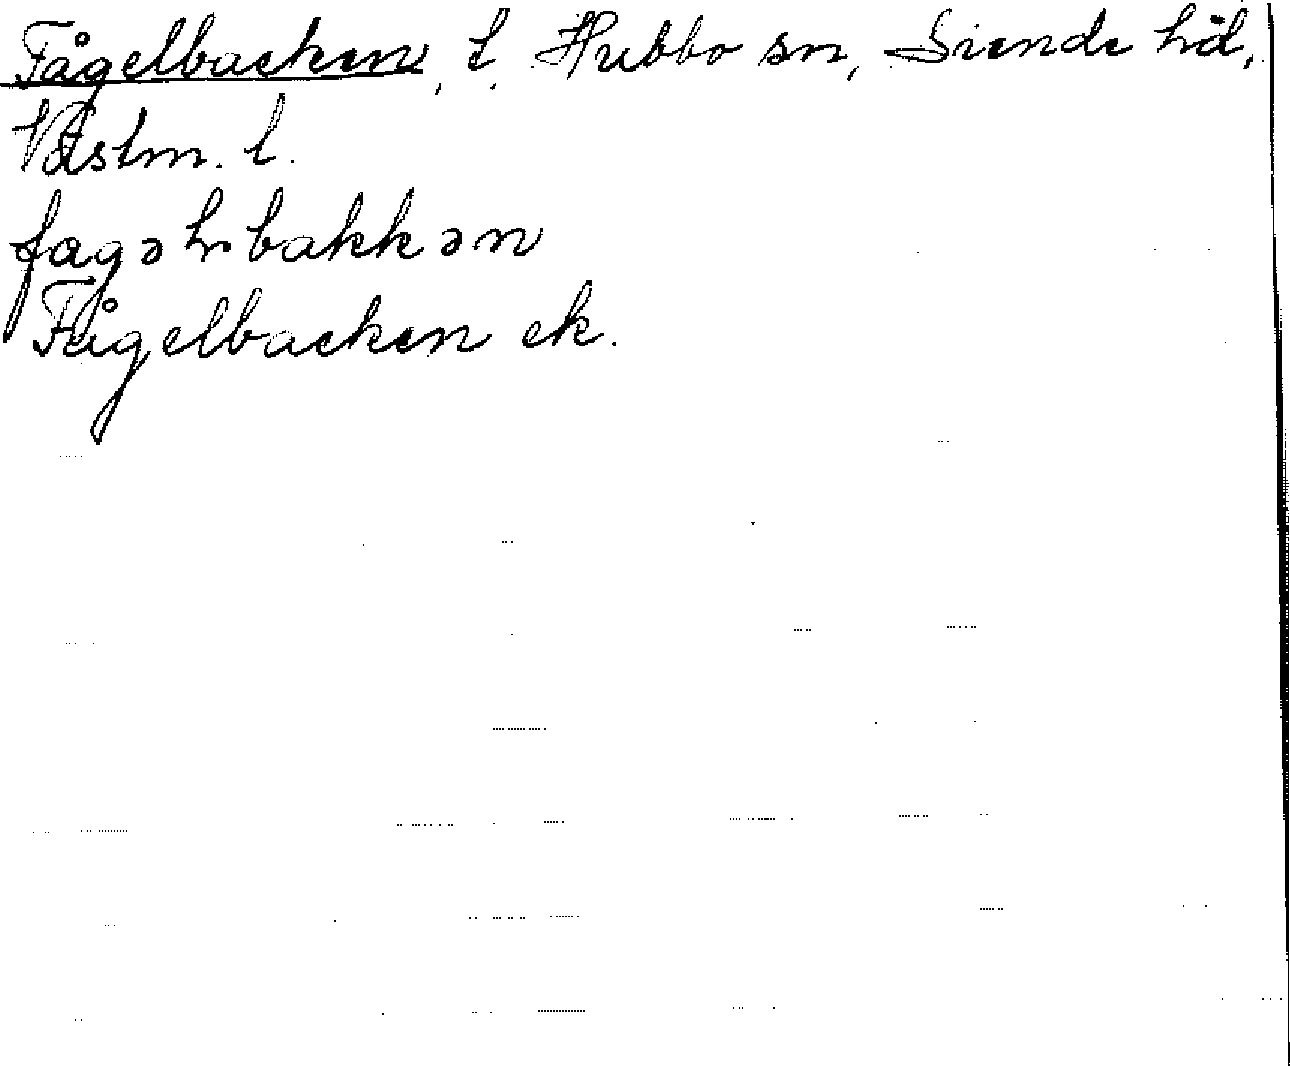 Fågelbacken, t, Hubbo sn, Siende hd,
Västm. l.
Fågelbacken ek.